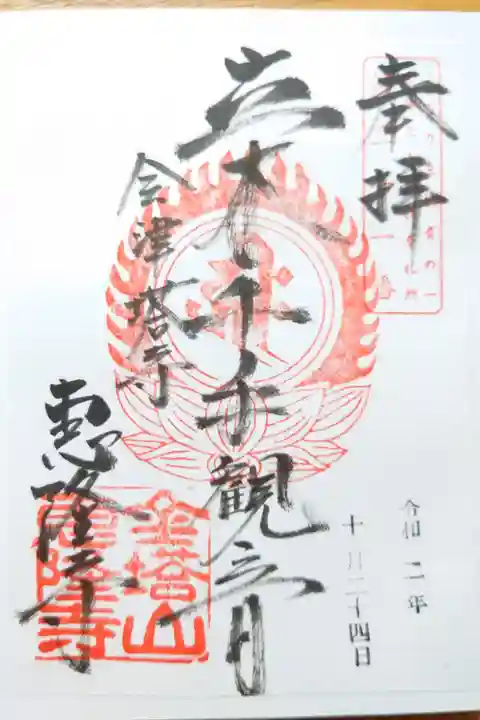 奉拝
立木千手觀音
会津塔寺
惠隆寺
金塔山
惠隆寺
令和二年
十月二十四日